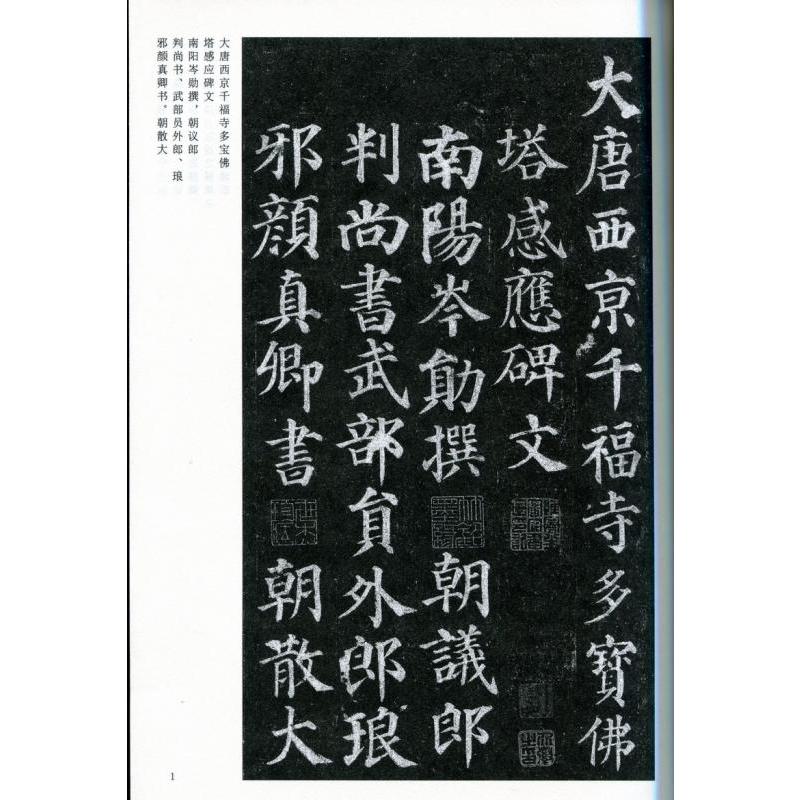 大唐西京千福寺多寶佛
塔感應碑文
南陽岑勛撰 朝議郎
判尚書武部員外郎琅
邪顏真卿書 朝散大
大唐西京千福寺多宝佛
塔感应碑文
南阳岑勋撰，朝议郎
判尚书、武部员外郎、琅
邪颜真卿书。朝散大
1